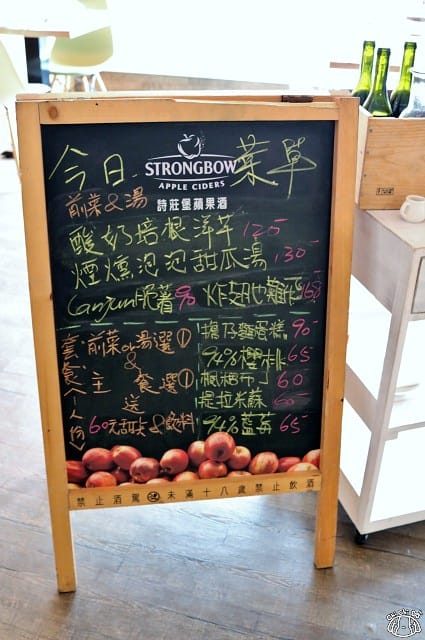 今日 菜單
STRONGBOW
APPLE CIDERS
詩莊堡蘋果酒
前菜&湯
酸奶培根洋芋 125
煙燻泡泡甜瓜湯 130
Canjun脆薯 90 炸翅也雞飛 168
套餐(一人份)
前菜or湯選①
&
主餐選①
送
60元甜尖&飲料
擔仔麵蛋糕 90
94%櫻桃 65
楓糖布丁 60
提拉米蘇 60
94%藍莓 65
禁止酒駕 未滿十八歲禁止飲酒